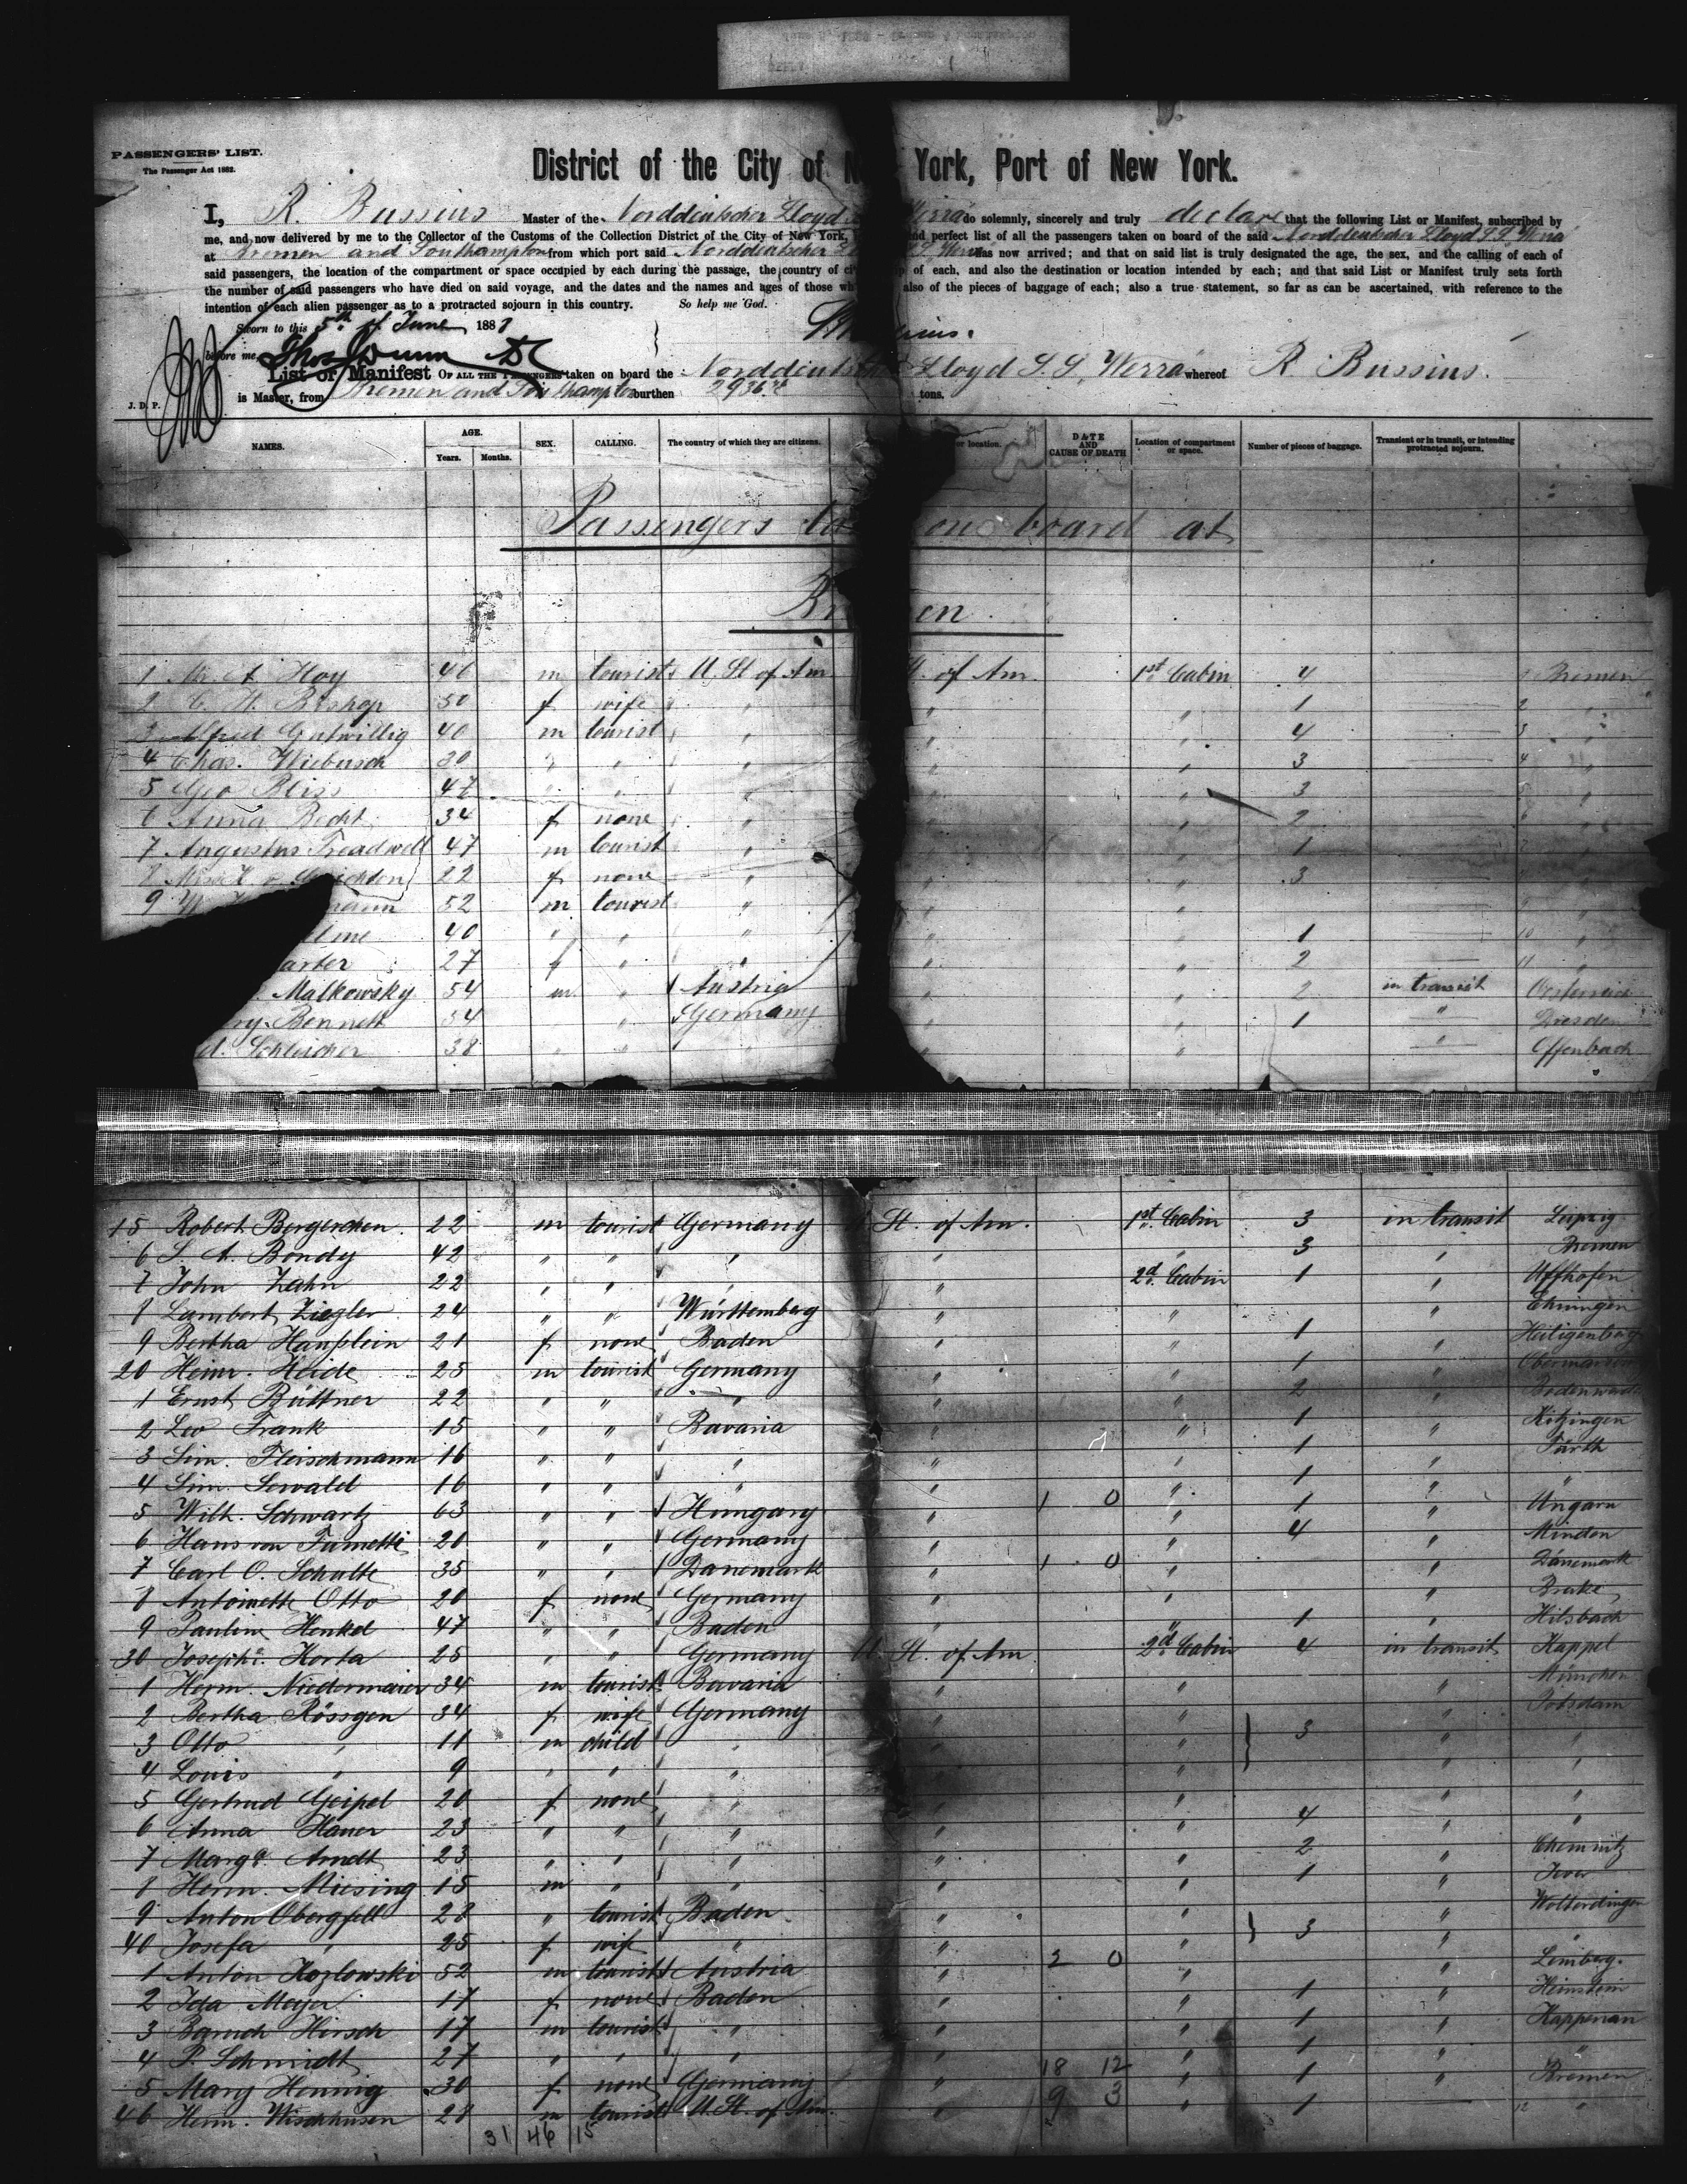 PASSENGERS' LIST.
The Passenger Act 1882.
District of the City of N York, Port of New York.
I, R. Bussius Master of the Norddeutscher Lloyd Werra do solemnly, sincerely and truly declare that the following List or Manifest, subscribed by
me, and now delivered by me to the Collector of the Customs of the Collection District of the City of New York, and perfect list of all the passengers taken on board of the said Norddeutscher Lloyd S.S. Werra
at Bremen and Southampton from which port said Norddeutscher has now arrived; and that on said list is truly designated the age, the sex, and the calling of each of
said passengers, the location of the compartment or space occupied by each during the passage, the country of of each, and also the destination or location intended by each; and that said List or Manifest truly sets forth
the number of said passengers who have died on said voyage, and the dates and the names and ages of those also of the pieces of baggage of each; also a true statement, so far as can be ascertained, with reference to the
intention of each alien passenger as to a protracted sojourn in this country. So help me God.
Sworn to this 5th of June 188
before me,
List or Manifest OF ALL THE PASSENGERS taken on board the Norddeutscher Lloyd S.S. Werra whereof R. Bussius.
J. D. P. is Master, from Bremen and Southampton burthen 2936 tons.
NAMES. AGE. Years. Months. SEX. CALLING. The country of which they are citizens. or location. DATE AND CAUSE OF DEATH Location of compartment or space. Number of pieces of baggage. Transient or in transit, or intending protracted sojourn.
Passengers on board at
1 Mr. A. Hoy 46 m tourist U. St of Am of Am. 1st Cabin 4 1 Bremen
2 C. H. Bishop 50 f wife " " " 1 2 "
3 Alfred Gutwillig 40 m tourist " " " 4 3 "
4 Chas. Wiebusch 30 " " " " 3 4 "
5 Geo Bliss 47 " " " " 3 "
6 Anna Becht 34 f none " " " 2 "
7 Augustus Treadwell 47 m tourist " " " 1 "
8 22 f none " " " 3 "
9 52 m tourist " " " "
40 " " " " " 1 10 "
27 f " " " " 2 11 "
Malkowsky 54 m " Austria " " 2 in transit
Bennett 54 " Germany " " 1 " Dresden
Schleicher 38 " " " " " " Offenbach
15 Robert Bergerchen 22 m tourist Germany St. of Am. 1st Cabin 3 in transit Leipzig
6 S. A. Bondy 42 " " " " " 3 " Bremen
7 John Zahn 22 " " " " 2d Cabin 1 " Uffhofen
8 Lambert Ziegler 24 " " Württemberg " " " Ehningen
9 Bertha Hanßlein 21 f none Baden " " 1 " Heiligenberg
20 Heinr. Heide 25 m tourist Germany " " 1 "
1 Ernst Büttner 22 " " " " " 2 "
2 Leo Frank 15 " " Bavaria " " 1 " Kitzingen
3 Sim. Fleischmann 16 " " " " " 1 " Fürth
4 Sim. Sewald 16 " " " " " 1 " "
5 Wilh. Schwartz 63 " " Hungary " 1 0 " 1 " Ungarn
6 Hans von 20 " " Germany " " 4 " Minden
7 Carl O. Schulte 35 " " Danemark " 1 0 " " Dänemark
8 Antoinette Otto 20 f none Germany " " " Brake
9 Pauline Henkel 47 " " Baden " " 1 " Hilsbach
30 Josephe. Korta 25 " " Germany U. St. of Am 2d Cabin 4 in transit Kappel
1 Herm. Niedermaier 34 m tourist Bavaria " " " München
2 Bertha Rössgen 34 f wife Germany " " " Potsdam
3 Otto " 11 m child " " " 3 " "
4 Louis " 9 " " " " " " "
5 Gertrud Geipel 20 f none " " " " "
6 Anna Hauer 23 " " " " " 4 " "
7 Margt. Arndt 23 " " " " " 2 " Chemnitz
8 Herm. Miesing 15 m " " " " 1 " Jever
9 Anton Obergfell 28 " tourist Baden " " " Wolterdingen
40 Josefa " 25 f wife " " " 3 " "
1 Anton Kozlowski 52 m tourist Austria " 2 0 " " Lemberg.
2 Ida Meyer 17 f none Baden " " 1 " Heinstein
3 Baruch Hirsch 17 m tourist " " " 1 " Kappenau
4 P. Schmidt 27 " " " " " 1 " "
18 12
5 Mary Hennig 30 f none Germany " " 1 " Bremen
46 Herm. Wischhusen 28 m tourist U. St. of Am. " 9 3 " 1 12 "
31 46 15